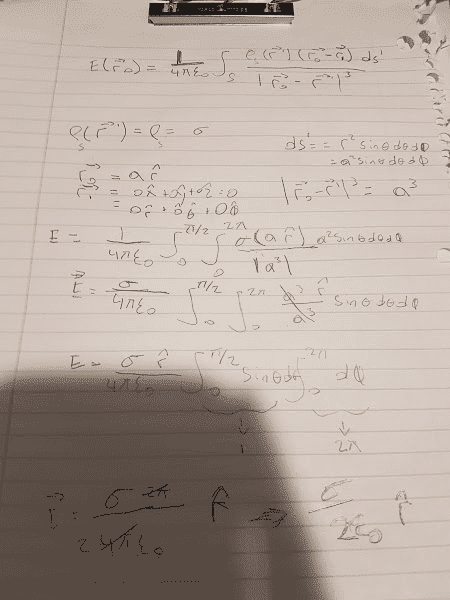 E(r⃗₀) = 1/4πε₀ ∫ₛ ρₛ(r⃗') (r⃗₀ - r⃗') ds' / |r⃗₀ - r⃗'|³
ρₛ(r⃗') = ρₛ = σ
ds' = r² sinθdθdφ
= a² sinθdθdφ
r⃗₀ = a r̂
r⃗' = 0x̂ + 0ŷ + 0ẑ = 0
|r⃗₀ - r⃗'|³ = a³
= 0r̂ + 0θ̂ + 0φ̂
E = 1/4πε₀ ∫₀^π/2 ∫₀^2π σ(a r̂) a² sinθdθdφ / |a³|
E⃗ = σ/4πε₀ ∫₀^π/2 ∫₀^2π a³ r̂/a³ sinθdθdφ
E = σ r̂/4πε₀ ∫₀^π/2 sinθdθ ∫₀^2π dφ
↓ ↓
1 2π
E⃗ = σ 2π / 2 4πε₀ r̂ ⇒ σ/2ε₀ r̂